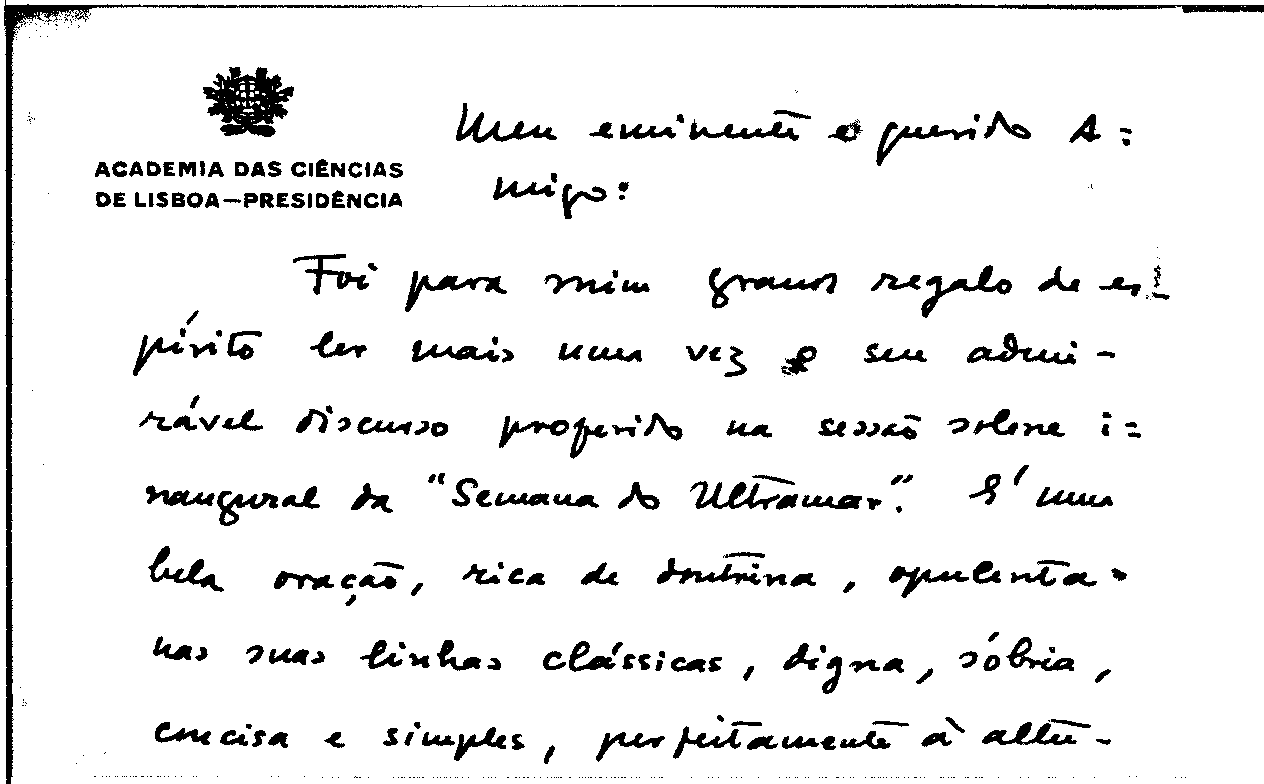 ACADEMIA DAS CIÊNCIAS
DE LISBOA—PRESIDÊNCIA
Meu eminente e querido A=
migo:
Foi para mim grande regalo de es-
pírito ler mais uma vez o seu admi-
rável discurso proferido na sessão solene i=
naugural da "Semana do Ultramar". É uma
bela oração, rica de doutrina, opulenta
nas suas linhas clássicas, digna, sóbria,
concisa e simples, perfeitamente à altu-